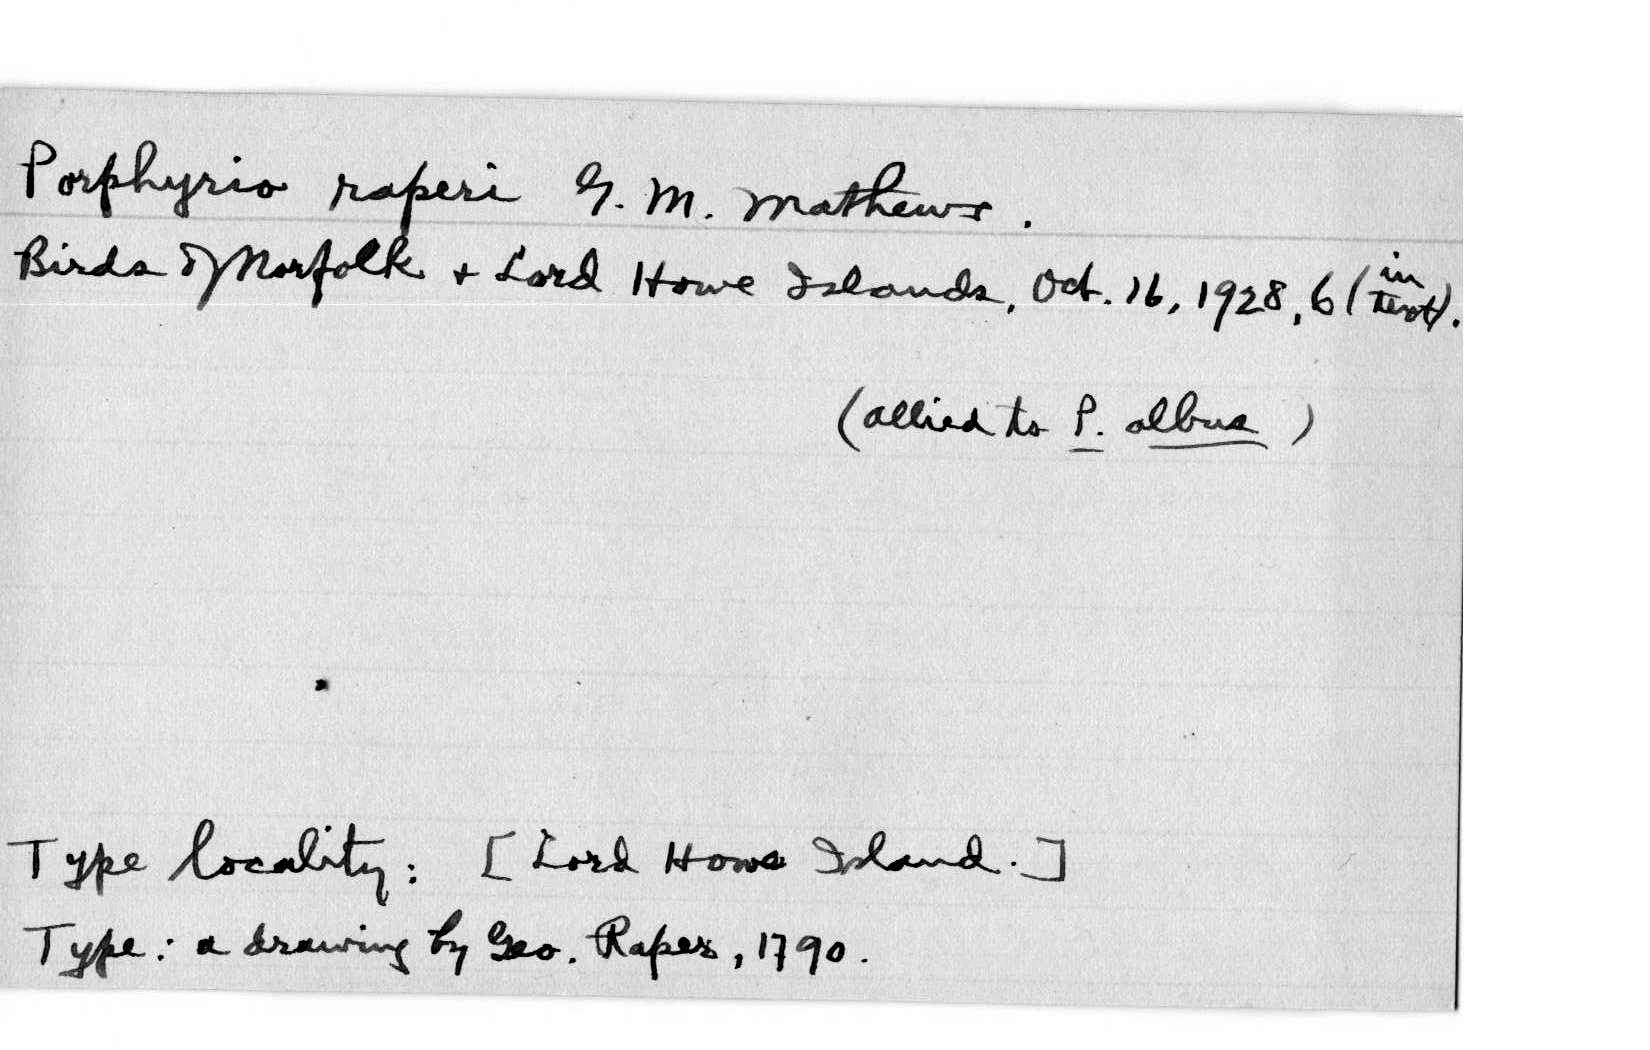 Porphyrio raperi G. M. Mathews.
Birds of Norfolk + Lord Howe Islands, Oct. 16, 1928, 6 (in text).
(allied to P. albus)
Type locality: [Lord Howe Island.]
Type: a drawing by Geo. Raper, 1790.